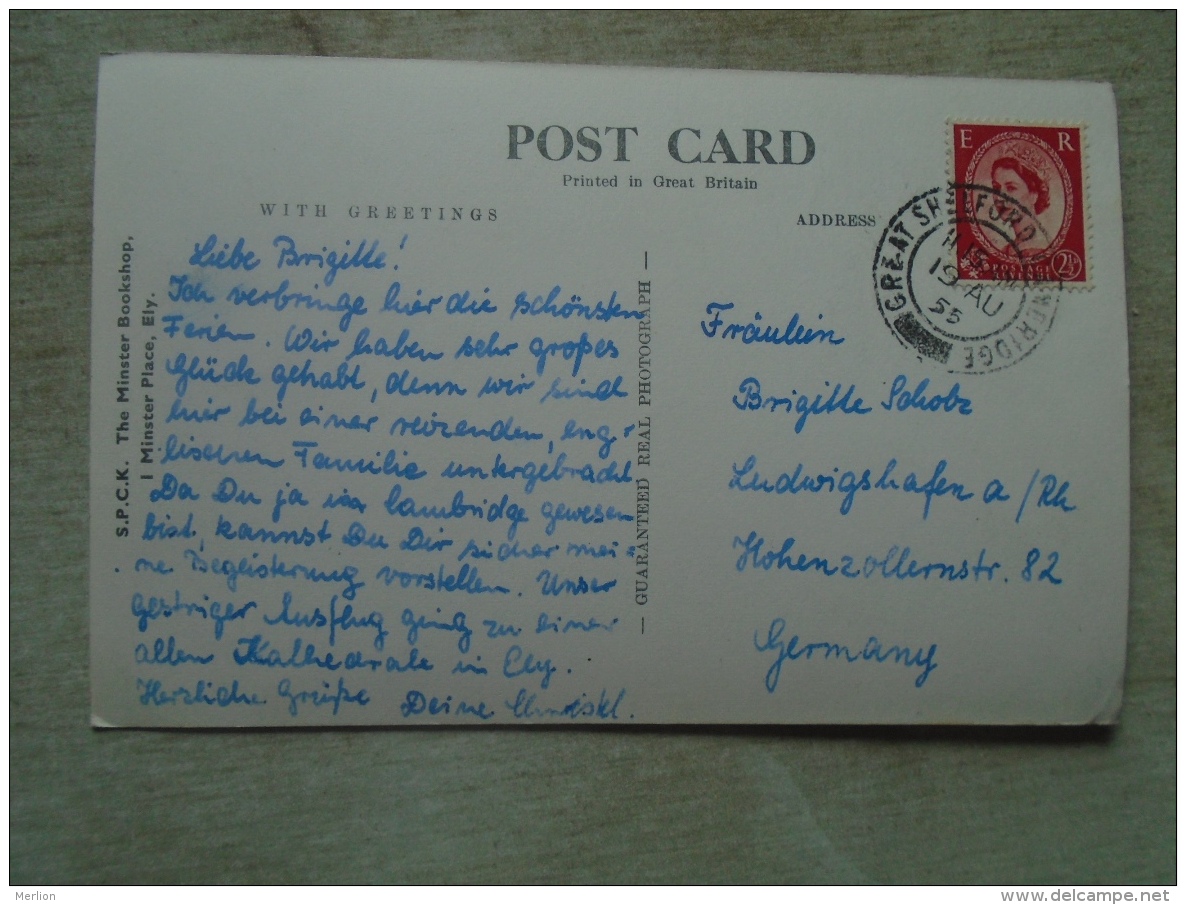 POST CARD
Printed in Great Britain
WITH GREETINGS
ADDRESS
S.P.C.K. The Minster Bookshop,
1 Minster Place, Ely.
— GUARANTEED REAL PHOTOGRAPH —
Liebe Brigitte!
Ich verbringe hier die schönsten
Ferien. Wir haben sehr großes
Glück gehabt, denn wir sind
hier bei einer reizenden, eng-
lischen Familie untergebracht
Da Du ja in Cambridge gewesen
bist, kannst Du Dir sicher mei-
ne Begeisterung vorstellen. Unser
gestriger Ausflug ging zu einer
alten Kathedrale in Ely.
Herzliche Grüße Deine Christl.
Fräulein
Brigitte Scholz
Ludwigshafen a/Rh
Hohenzollernstr. 82
Germany
E R
POSTAGE
2½D
GREAT SHELFORD
CAMBRIDGE
19 AU
55
Merlion
www.delcampe.net